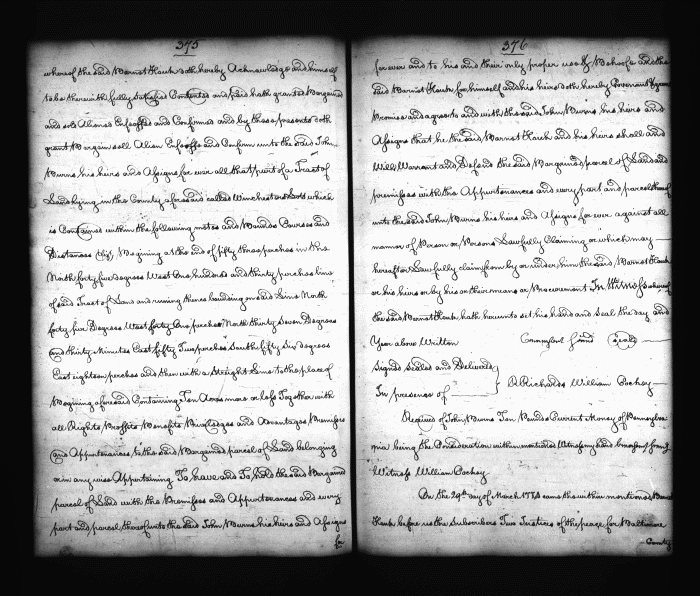 375
whereof the said Barnet Hauk doth hereby Acknowledge and himself
to be therewith fully Satisfied Contented and paid hath granted Bargained
and sold Aliened Enfeoffed and Confirmed and by these presents doth
grant Bargain sell Alien Enfeoff and Confirm unto the said John
Burns his heirs and Assigns for ever all that part of a Tract of
Land lying in the County aforesaid called Winchesters Lott which
is Contained within the following metes and Bounds Courses and
Distances (Viz) Begining at the end of fifty three perches in the
North forty five degrees West One hundred and thirty perches line
of said Tract of Land and runing thence bounding on said Line North
forty five Degrees West forty One perches North thirty Seven Degrees
and thirty Minutes East fifty Two perches South fifty Six degrees
East eighteen perches and then with a Straight Line to the place of
Begining aforesaid Containing Ten Acres more or less Together with
all Rights Profits Benefits Priviledges and Advantages Premisses
and Appurtenances to the said Bargained parcel of Land belonging
or in any wise Appertaining To have and To hold the said Bargained
parcel of Land with the Premisses and Appurtenances and every
part and parcel thereof unto the said John Burns his heirs and Assigns
for
376
for ever and to his and their only proper use & Behoof and the
said Barnet Hauk for himself and his heirs doth hereby Covenant & grant
Promise and agree to and with the said John Burns his heirs and
Assigns that he the said Barnet Hauk and his heirs shall and
Will Warrant and Defend the said Bargained parcel of Land and
premisses with the Appurtenances and every part and parcel thereof
unto the said John Burns his heirs and Assigns for ever against all
manner of Person or Persons Lawfully Claiming or which may
hereafter Lawfully claim from by or under him the said Barnet Hauk
or his heirs or by his or their means or Procurement In Witness whereof
the said Barnet Hauk hath hereunto set his hand and Seal the day and
Year above Written seal
Signed Sealed and Delivered
In presence of
D Richards William Cockey
Received of John Burns Ten Pounds Current Money of Pennsylva
nia being the Consideration within mentioned Witness my hand
Witness William Cockey
On the 29th day of March 177 came the within mentioned
Hauk before us the Subscribers Two Justices of the peace for Baltimore
County